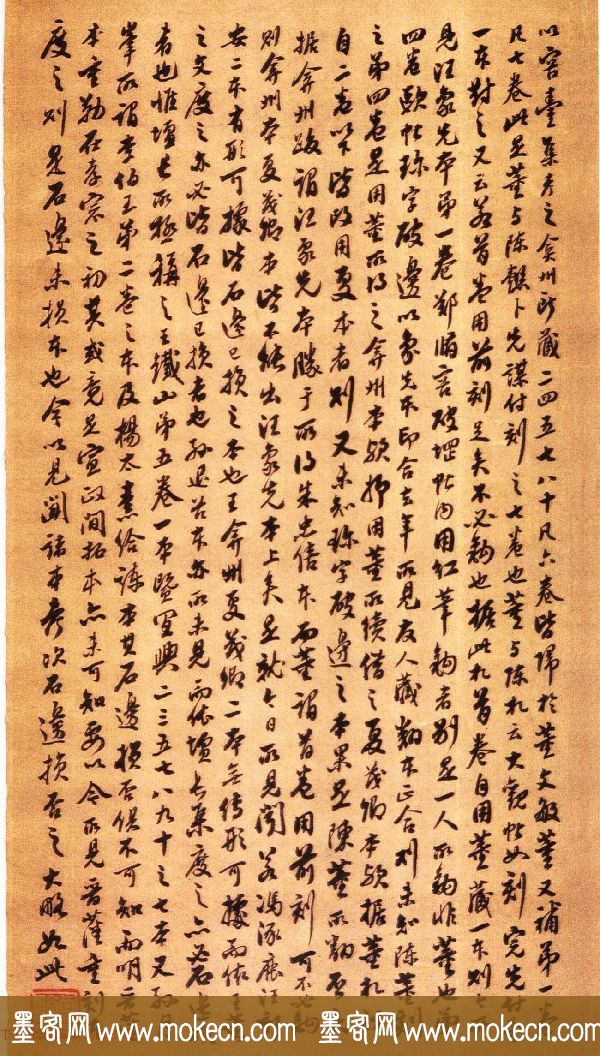 以容台集考之弇州所藏二四五七八十凡六卷皆归于董文敏董又补第一卷
凡七卷此是董与陈懿卜先谋付刻之七卷也董与陈札云大观帖如刻完先付
一本对之又云若首卷用前刻足矣不必钩也据此札首卷自用董藏一本刻
见汪象先本第一卷郑 破 帖内用红笔钩者别是一人所钩非董也
四卷欧帖 字破边以象先本印合去年所见友人藏翻本正合则未知陈董刻
之第四卷是用董所得之弇州本欤抑用董所续借之夏茂卿本欤据董札
自二卷以下皆改用夏本者则又未知 字破边之本果是陈董所翻否
据弇州跋谓汪象先本胜于所得朱忠僖本而董谓首卷用前刻可不必钩
则弇州本夏茂卿本皆不能出汪象先本上矣是就今日所见闻若冯涿鹿
安二本有形可据皆石边已损之本也王弇州夏茂卿二本无传形可据而依
之文度之亦必皆石边已损者也孙退谷本亦所未见而依 集度之亦必石边
者也惟 所极称之王铁山第五卷一本暨宜兴二三五七八九十之七本又
峯所谓李伯玉第二卷之本及杨太素给谏本其石边损否俱不可知而明
本重勒石孝宗之初其或竟是宣政间拓本亦未可知要以今所见 重刻
度之则是石边未损本也今以见闻诸本考次石边损否之大略如此
墨客网 www.mokecn.com 墨客网 www.mokecn.com